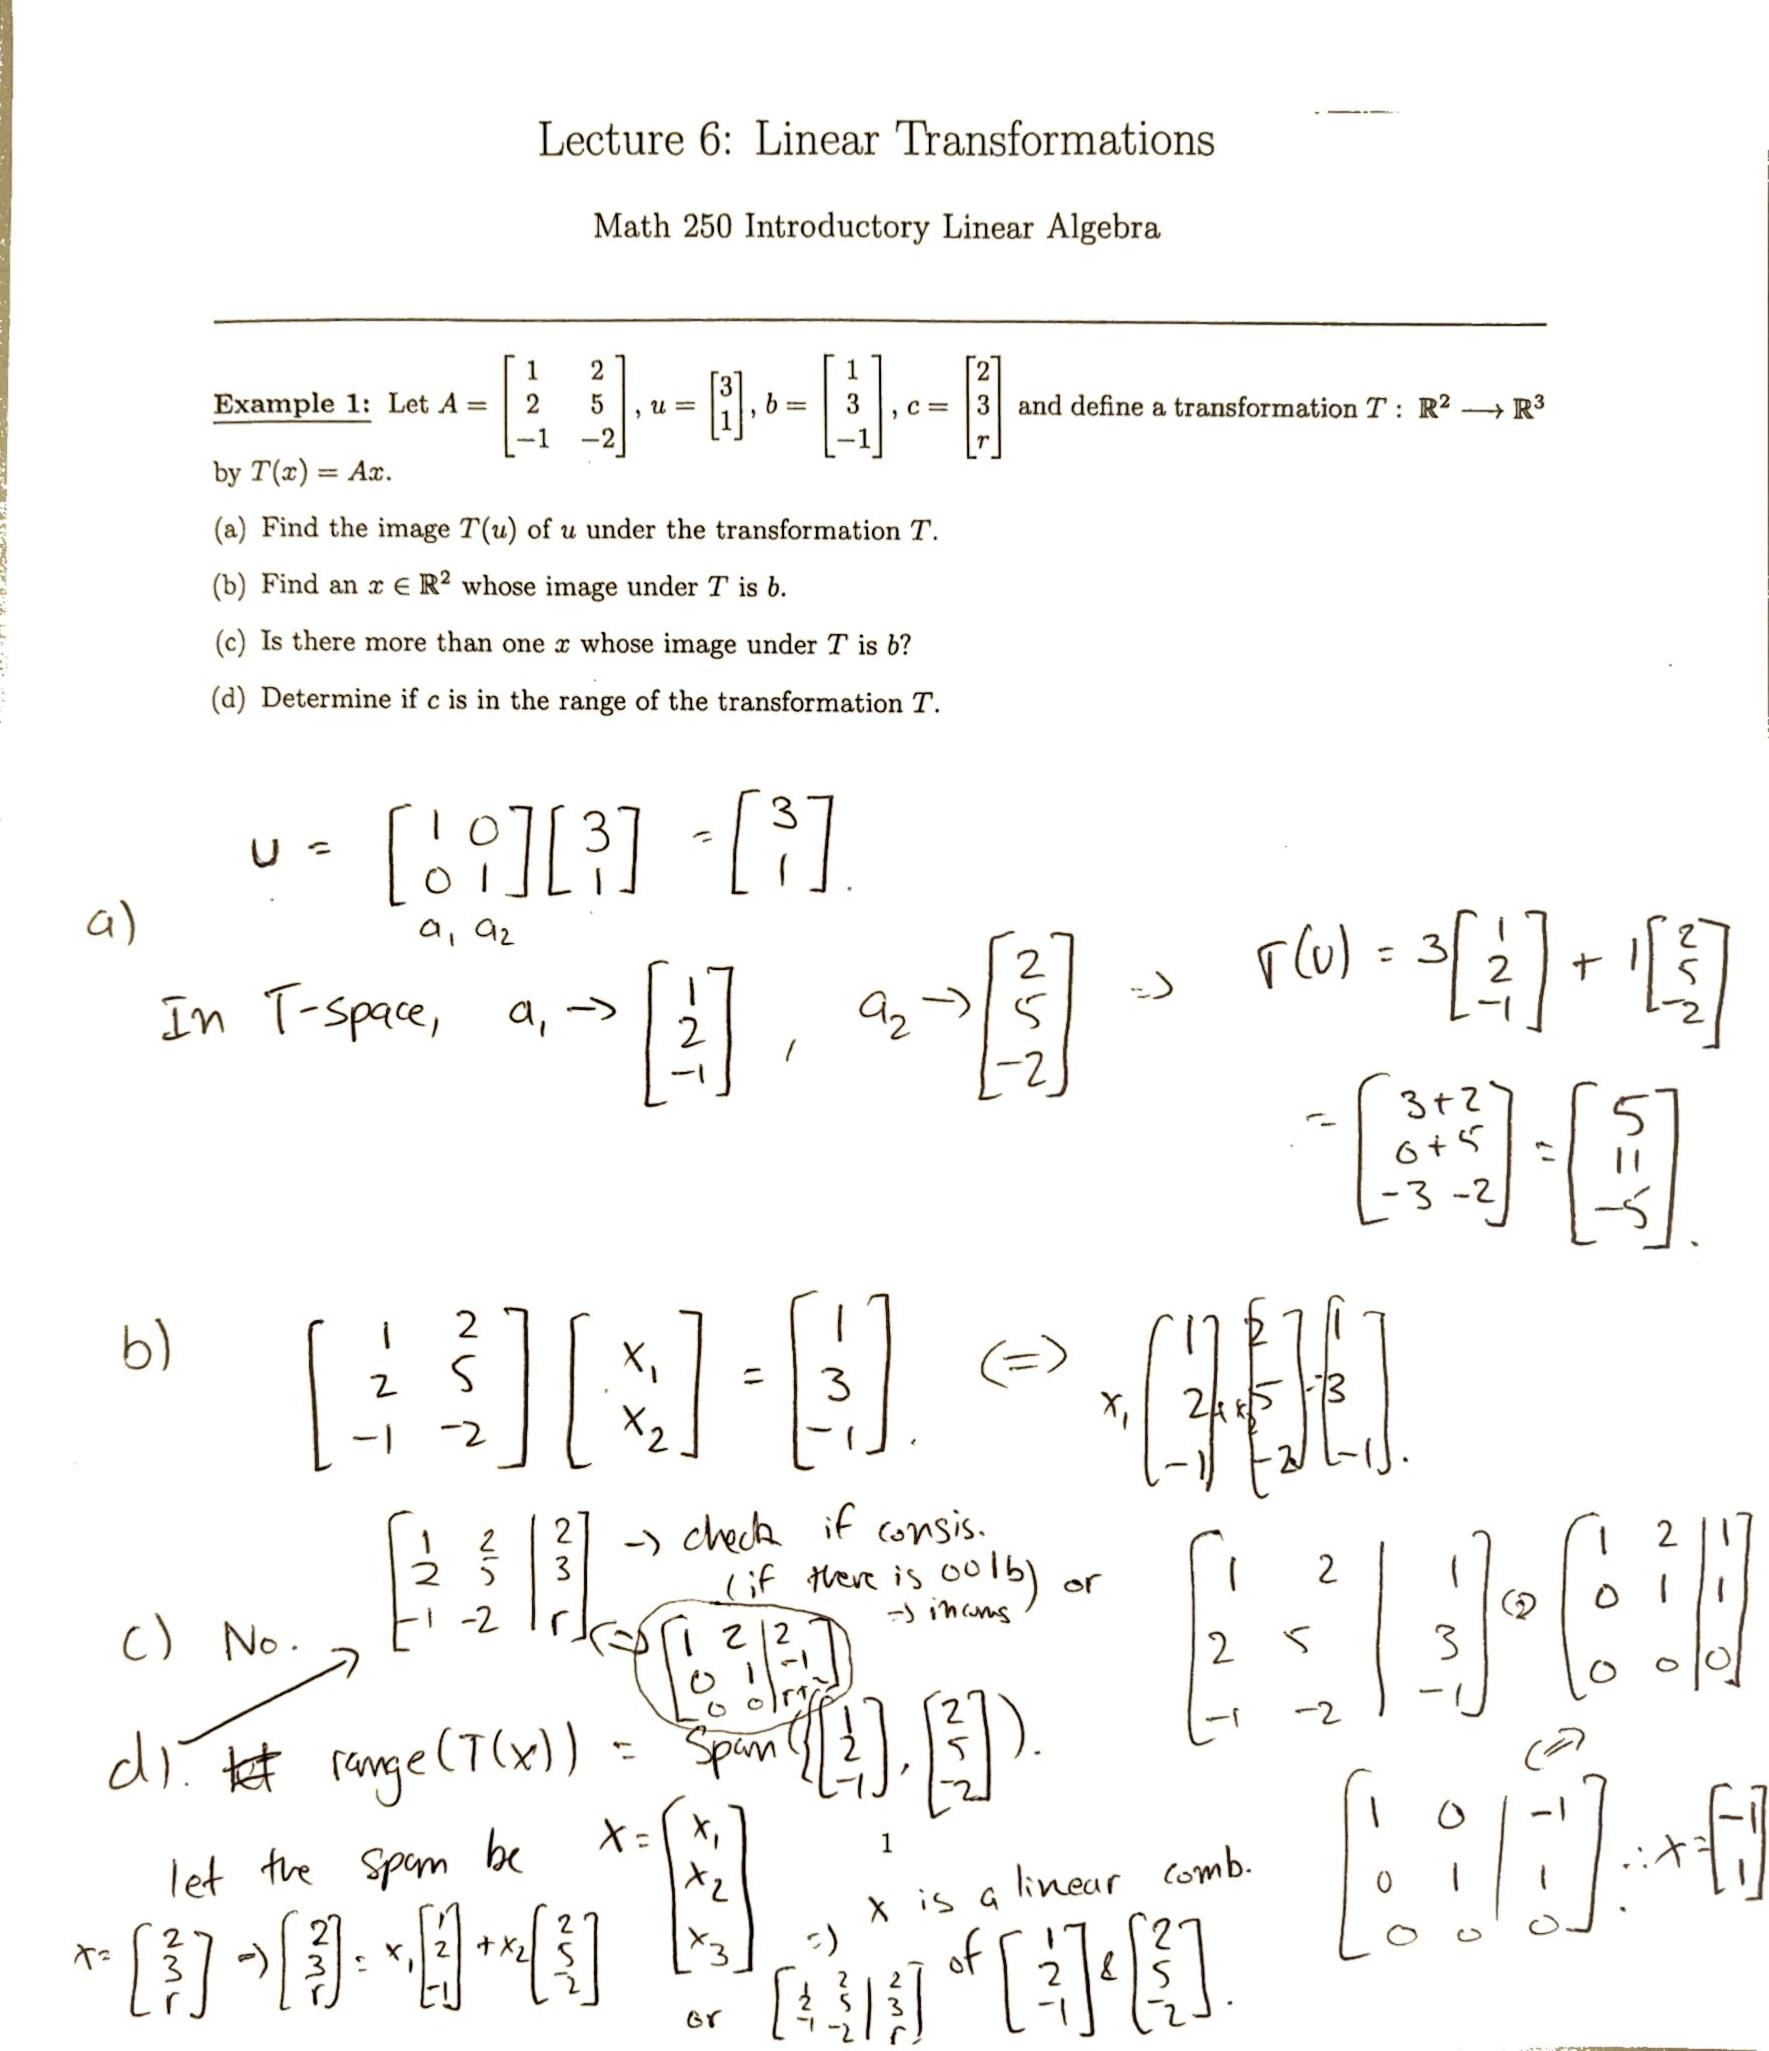 Lecture 6: Linear Transformations
Math 250 Introductory Linear Algebra
Example 1: Let A = [1 2; 2 5; −1 −2], u = [3; 1], b = [1; 3; −1], c = [2; 3; r] and define a transformation T : ℝ² ⟶ ℝ³
by T(x) = Ax.
(a) Find the image T(u) of u under the transformation T.
(b) Find an x ∈ ℝ² whose image under T is b.
(c) Is there more than one x whose image under T is b?
(d) Determine if c is in the range of the transformation T.
u = [1 0; 0 1][3; 1] = [3; 1].
a)
a₁ a₂
In T-space, a₁ → [1; 2; -1], a₂ → [2; 5; -2] => T(u) = 3[1; 2; -1] + 1[2; 5; -2]
= [3+2; 6+5; -3-2] = [5; 11; -5].
b) [1 2; 2 5; -1 -2][x₁; x₂] = [1; 3; -1]. (=) x₁[1; 2; -1] + x₂[2; 5; -2] = [1; 3; -1].
[1 2 | 2; 2 5 | 3; -1 -2 | r] → check if consis.
(if there is 0 0 | b) or [1 2 | 1; 2 5 | 3; -1 -2 | -1] (=) [1 2 | 1; 0 1 | 1; 0 0 | 0]
c) No. (=) [1 2 | 2; 0 1 | -1; 0 0 | r+2]
(=)
d). range(T(x)) = Span([1; 2; -1], [2; 5; -2]).
[1 0 | -1; 0 1 | 1; 0 0 | 0]. ∴ x = [-1; 1]
let the span be x = [x₁; x₂; x₃]
1
=> x is a linear comb.
of [1; 2; -1] & [2; 5; -2].
x = [2; 3; r] => [2; 3; r] = x₁[1; 2; -1] + x₂[2; 5; -2]
or [1 2 | 2; 2 5 | 3; -1 -2 | r]